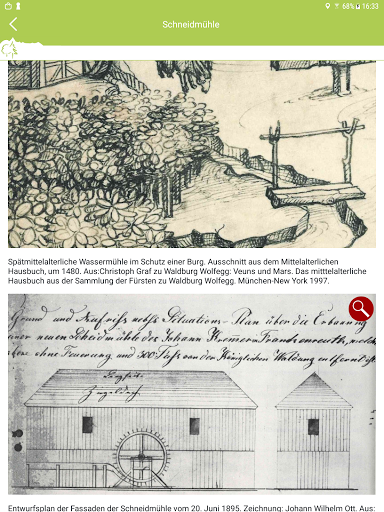 68% 16:33
Schneidmühle
Spätmittelalterliche Wassermühle im Schutz einer Burg. Ausschnitt aus dem Mittelalterlichen
Hausbuch, um 1480. Aus:Christoph Graf zu Waldburg Wolfegg: Veuns und Mars. Das mitttelalterliche
Hausbuch aus der Sammlung der Fürsten zu Waldburg Wolfegg. München-New York 1997.
Grund und Aufriss nebst Situations-Plan über die Erbauung
einer neuen Schneidmühle des Johann Kremer Frankenreuth, welche
ohne Feuerung und 300 Fuss von der Königlichen Waldung entfernt ist.
Ziegeldach
Entwurfsplan der Fassaden der Schneidmühle vom 20. Juni 1895. Zeichnung: Johann Wilhelm Ott. Aus: